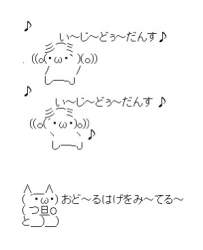 ♪
い～じ～どぅ～だんす♪
((o(･ω･` )(o))
♪
い～じ～どぅ～だんす ♪
((o( ´･ω･)o))
♪
∧＿∧
( ´･ω･) おど～るはげをみ～てる～
( つ旦O
と＿)＿)